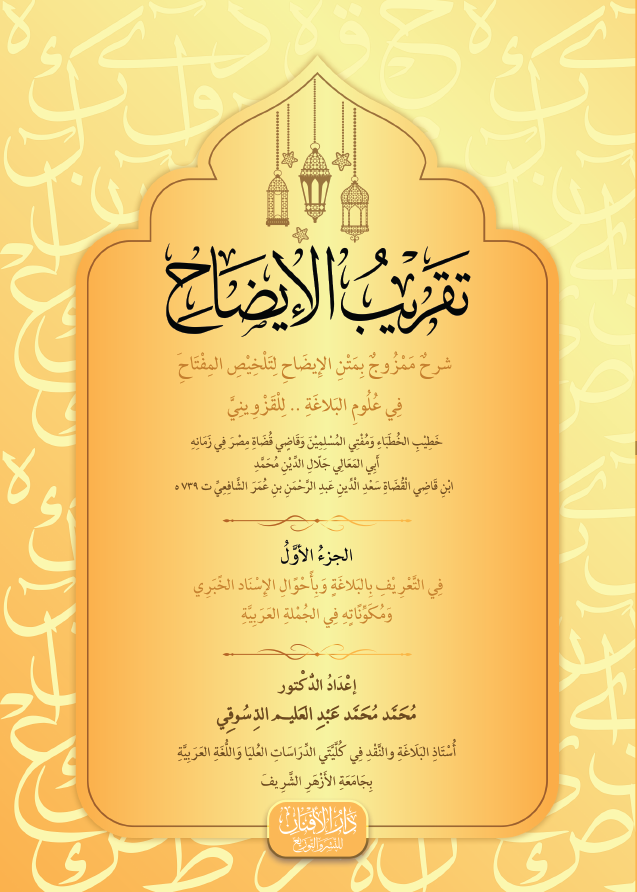 تَقْرِيْبُ الإِيضَاحِ
شرحٌ مَمْزُوجٌ بِمَتْنِ الإِيضَاحِ لِتَلْخِيْصِ المِفْتَاحَ
فِي عُلُومِ البَلاغَةِ .. لِلْقَزْوِينِيَّ
خَطِيْبِ الخُطَبَاءِ وَمُفْتِي المُسْلِمِيْنَ وَقَاضِي قُضَاةِ مِصْرَ فِي زَمَانِهِ
أَبِي المَعَالِي جَلَالِ الدِّيْنِ مُحَمَّدِ
ابْنِ قَاضِي الْقُضَاةِ سَعْدِ الدِّينِ عَبدِ الرَّحْمَنِ بنِ عُمَرَ الشَّافِعِيِّ ت ٧٣٩ ه
الجزءُ الأوَّلُ
فِي التَّعْرِيْفِ بِالبَلاغَةِ وَبِأَحْوَالِ الإِسْنَادِ الخَبَرِي
وَمُكَوِّنَاتِهِ فِي الجُمْلةِ العَرَبِيَّةِ
إعْدَادُ الدُّكْتور
مُحَمَّد مُحَمَّد عَبْدِ العَليـم الدِّسُوقِي
أُسْتَاذِ البَلَاغَةِ والنَّقْدِ فِي كُلِّيَّتَي الدِّرَاسَاتِ العُليَا وَاللُّغَةِ العَرَبِيَّةِ
بِجَامَعَةِ الأَزْهَرِ الشَّرِيفَ
دَارُ الأَفْنَانِ
للنشر والتوزيع